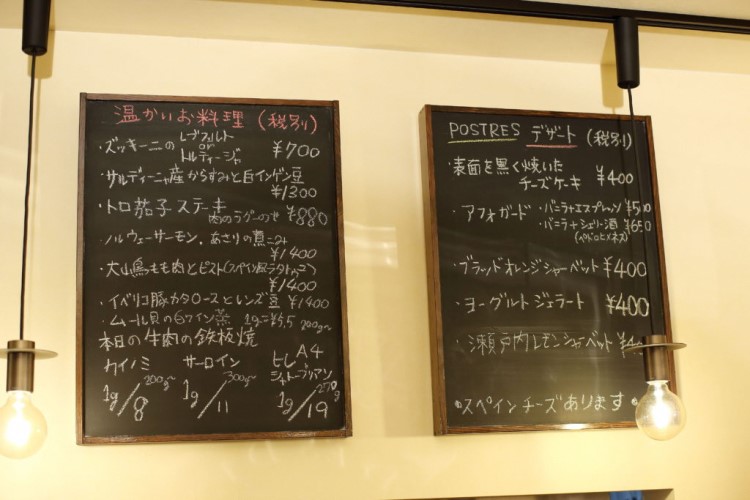 温かいお料理 (税別)
レブフェルト
・ズッキーニの or ¥700
トルティージャ
・サルディーニャ産からすみと白インゲン豆
¥1300
・トロ茄子ステーキ
肉のラグーのせ ¥880
・ノルウェーサーモン、あさりの煮こみ
¥1400
・大山鳥もも肉とピスト(スペイン風ラタトゥユ)
¥1400
・イベリコ豚カタロースとレンズ豆 ¥1400
・ムール貝の白ワイン蒸 1g=¥5.5 200g~
本日の牛肉の鉄板焼
カイノミ サーロイン ヒレA4
シャトーブリアン
200g~ 300g~ 270g
1g/8 1g/11 1g/19
POSTRES デザート (税別)
・表面を黒く焼いた
チーズケーキ ¥400
・アフォガード ・バニラ+エスプレッソ ¥500
・バニラ+シェリー酒 ¥650
(ペドロヒメネス)
・ブラッドオレンジシャーベット ¥400
・ヨーグルトジェラート ¥400
・瀬戸内レモンシャーベット
・スペインチーズあります・